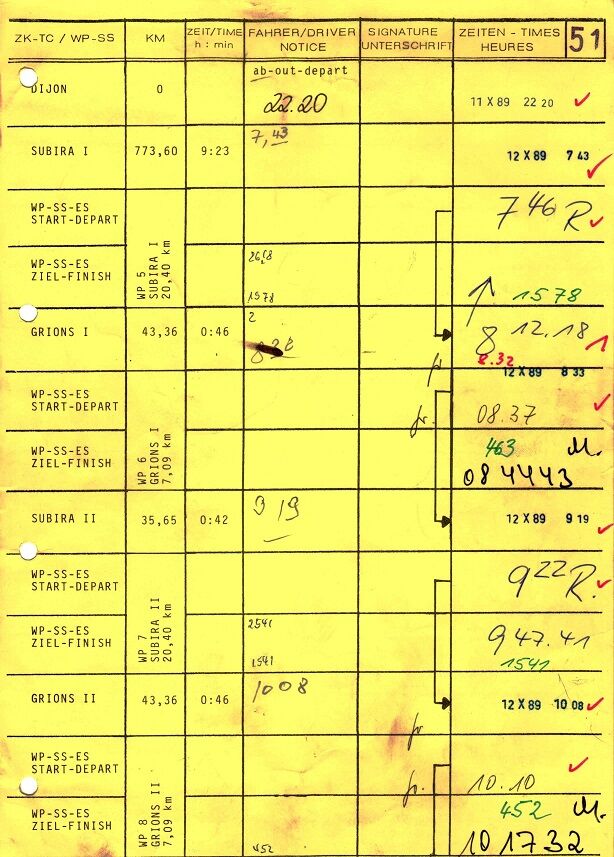 ZK-TC / WP-SS KM ZEIT/TIME h : min FAHRER/DRIVER NOTICE SIGNATURE UNTERSCHRIFT ZEITEN - TIMES HEURES 51
ab-out-depart
DIJON 0 22.20 11 X 89 22 20
SUBIRA I 773,60 9:23 7,43 12 X 89 7 43
WP-SS-ES
START-DEPART 7 46 R
WP 5
SUBIRA I
20,40 km
WP-SS-ES
ZIEL-FINISH 1578 1578
GRIONS I 43,36 0:46 2 8 12.18
8.32
12 X 89 8 33
WP-SS-ES
START-DEPART fr. 08.37
WP 6
GRIONS I
7,09 km
WP-SS-ES
ZIEL-FINISH 463 M.
084443
SUBIRA II 35,65 0:42 9 19 12 X 89 9 19
WP-SS-ES
START-DEPART 9 22 R.
WP 7
SUBIRA II
20,40 km
WP-SS-ES
ZIEL-FINISH 2541 947.41
1541 1541
GRIONS II 43,36 0:46 1008 12 X 89 10 08
WP-SS-ES
START-DEPART fr. 10.10
WP 8
GRIONS II
7,09 km
WP-SS-ES
ZIEL-FINISH 452 452 M.
101732